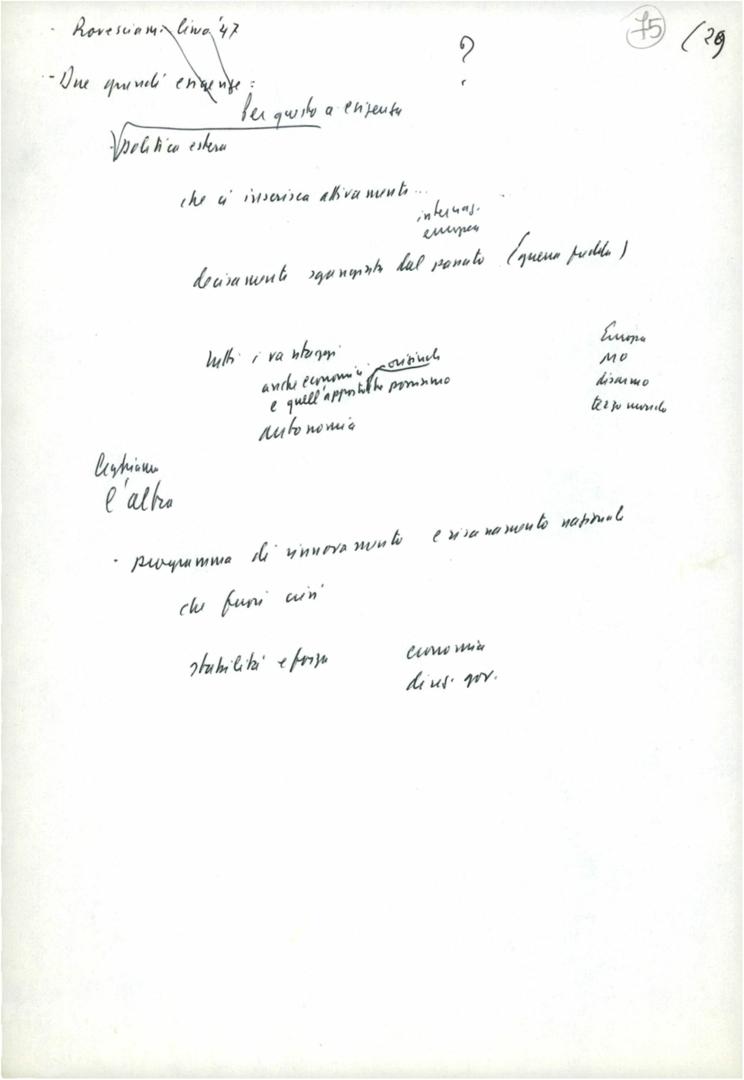 75 (29
- Rovesciam. linea '47
?
- Due quindi esigenze:
Per questo a esigenza
politica estera
che ci inserisca attivamente...
internaz.
europea
decisamente sganciata dal passato (guerra fredda)
tutti i vantaggi
anche economici
e quell'apporto che possiamo
autonomia
Europa
MO
disarmo
terzo mondo
l'altra
- programma di rinnovamento e risanamento nazionale
che fuori crisi
stabilità e forza
economia
direz. gov.